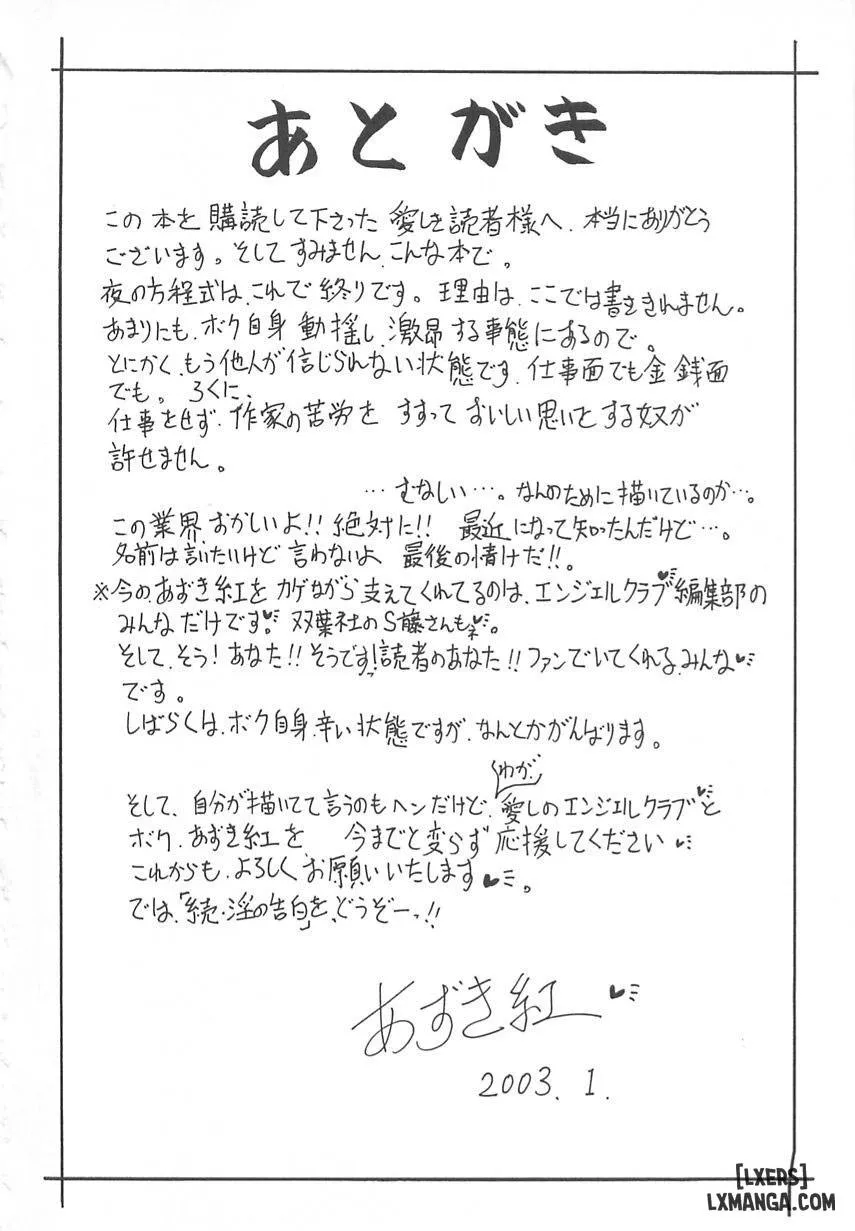 あとがき
この本を購読して下さった愛しき読者様へ、本当にありがとう
ございます。そしてすみません、こんな本で。
夜の方程式は、これで終りです。理由は、ここでは書ききれません。
あまりにも、ボク自身動揺し、激昂する事態にあるので。
とにかく、もう他人が信じられない状態です、仕事面でも金銭面
でも。ろくに、
仕事をせず、作家の苦労をすすっておいしい思いをする奴が
許せません。
…むなしい…。なんのために描いているのか…。
この業界、おかしいよ!!絶対に!!最近になって知ったんだけど…。
名前は言いたいけど言わないよ 最後の情けだ!!。
※今の、あずき紅をカゲながら支えてくれてるのは、エンジェルクラブ♥編集部の
みんなだけです♥。双葉社のS藤さんもネ♥。
そして、そう!あなた!!そうです!読者のあなた!!ファンでいてくれる、みんな♥
です。
しばらくは、ボク自身、辛い状態ですが、なんとかがんばります。
わが、
そして、自分が描いてて言うのもヘンだけど、愛しのエンジェルクラブ♥と
ボク、あずき紅を、今までと変らず応援してください♥
これからも、よろしくお願いいたします♥。
では、「続・淫の告白」を、どうぞーっ!!
あずき紅♥
2003.1.
[LXERS]
LXMANGA.COM